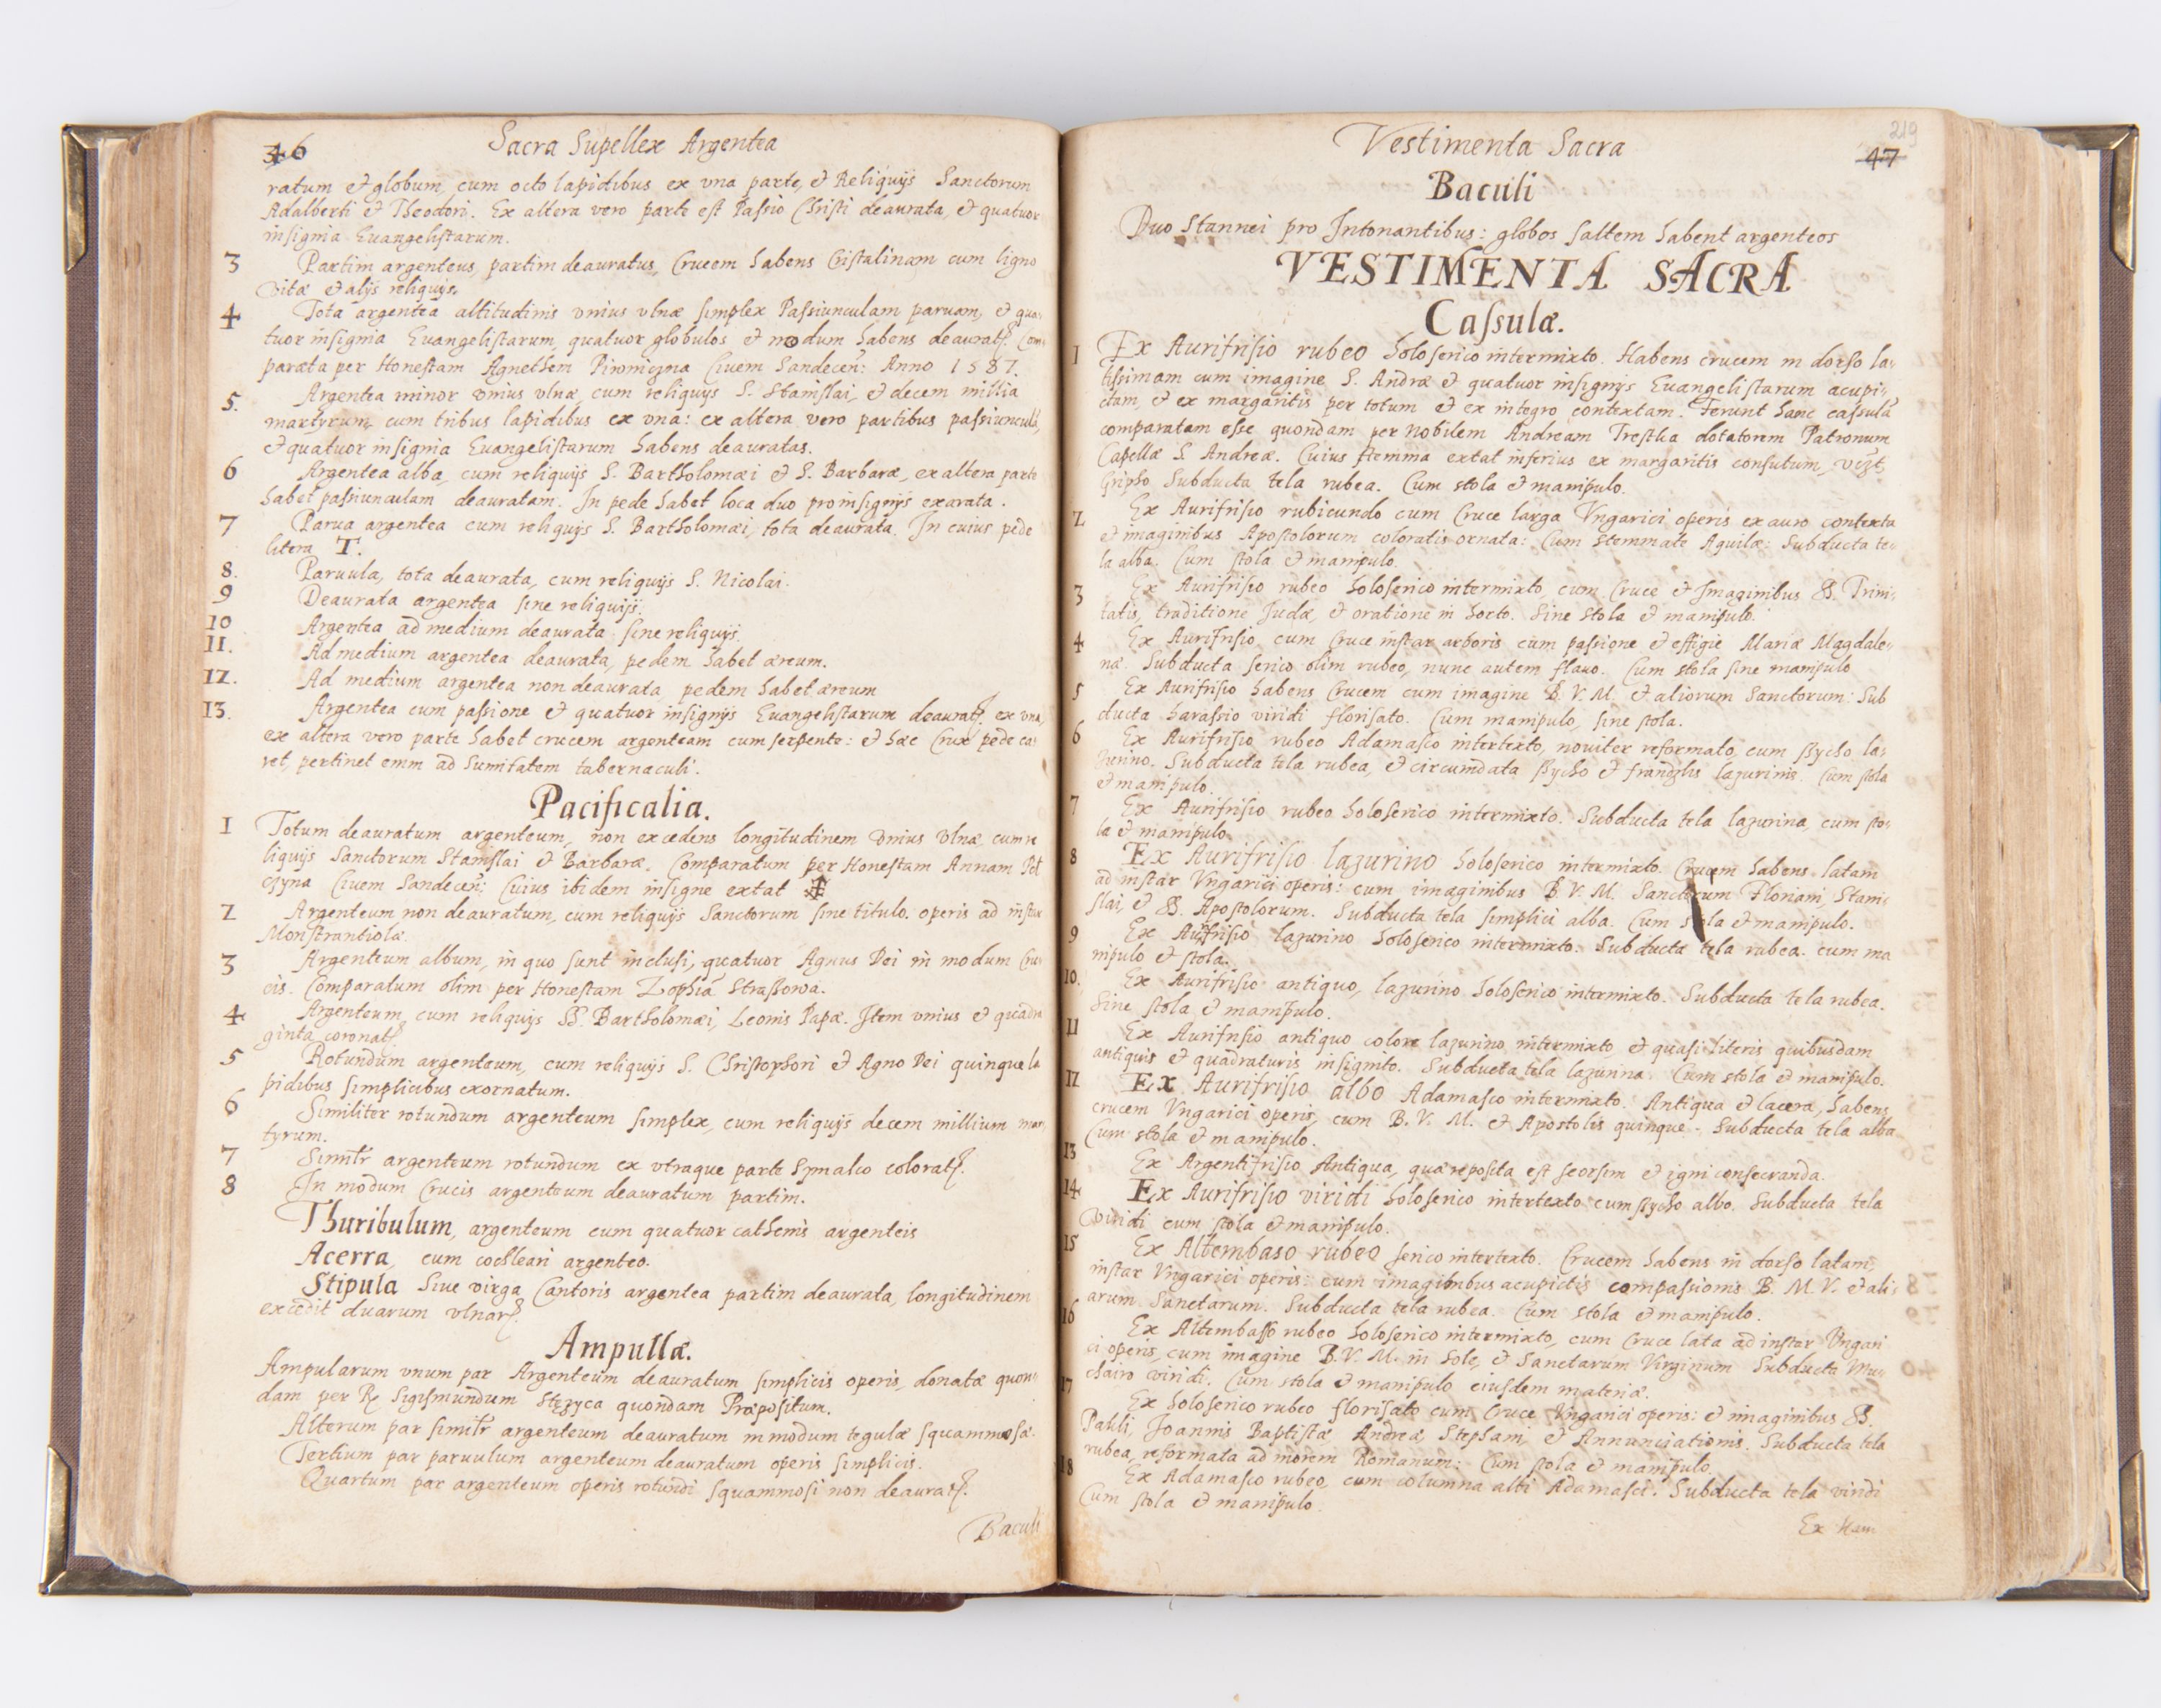 46
Sacra Supellex Argentea
ratum et globum, cum octo lapidibus ex vna parte, et Reliquijs Sanctorum
Adalberti et Theodori. Ex altera vero parte est Passio Christi deaurata, et quatuor
insignia Euangelistarum.
3 Partim argenteus, partim deauratus, Crucem habens Cristalinam cum ligno
vitæ et alijs reliquijs.
4 Tota argentea altitudinis vnius vlnæ simplex Passiunculam paruam, et qua-
tuor insignia Euangelistarum, quatuor globulos et nodum habens deaurat. Com
parata per Honestam Agnethem Ciuem Sandecen: Anno 1587.
5. Argentea minor vnius vlnæ, cum reliquijs S. Stanislai, et decem millia
martyrum, cum tribus lapidibus ex vna: ex altera vero partibus passiunculã,
et quatuor insignia Euangelistarum habens deauratas.
6 Argentea alba, cum reliquijs S. Bartholomæi et S. Barbaræ, ex altera parte
habet passiunculam deauratam. In pede habet loca duo pro insignijs exarata.
7 Parua argentea cum reliquijs S. Bartholomæi, tota deaurata. In cuius pede
litera T.
8. Paruula, tota deaurata, cum reliquijs S. Nicolai.
9 Deaurata argentea sine reliquijs.
10 Argentea ad medium deaurata sine reliquijs.
11. Ad medium argentea deaurata, pedem habet æreum.
12. Ad medium argentea non deaurata pedem habet æreum
13. Argentea cum passione et quatuor insignijs Euangelistarum deaurat. ex vna
ex altera vero parte habet crucem argenteam cum serpente: et hæc Crux pede ca
ret, pertinet enim ad Sumitatem tabernaculi.
Pacificalia.
1 Totum deauratum argenteum, non excedens longitudinem vnius vlnæ cum re
liquijs Sanctorum Stanislai et Barbaræ. Comparatum per Honestam Annam Pet
czyna Ciuem Sandecen: Cuius ibidem insigne extat
2 Argenteum non deauratum, cum reliquijs Sanctorum sine titulo. operis ad instar
Monstrantiolæ.
3 Argenteum album, in quo sunt inclusi, quatuor Agnus Dei in modum Cru
cis. Comparatum olim per Honestam Zophiã Strassowa.
4 Argenteum, cum reliquijs SS. Bartholomæi, Leonis Papæ. Item vnius et quadra
ginta coronat.
5 Rotundum argenteum, cum reliquijs S. Christophori et Agno Dei quinque la
pidibus simplicibus exornatum.
6 Similiter rotundum argenteum simplex, cum reliquijs decem millium mar
tyrum.
7 Similr argenteum rotundum ex vtraque parte Symalco colorat.
8 In modum Crucis argenteum deauratum partim.
Thuribulum, argenteum cum quatuor cathenis argenteis
Acerra, cum cochleari argenteo.
Stipula Siue virga Cantoris argentea partim deaurata, longitudinem
excedit duarum vlnar.
Ampullæ.
Ampularum vnum par Argenteum deauratum simplicis operis, donatæ quon-
dam per R Sigismundum Stęzyca quondam Præpositum.
Alterum par similr argenteum deauratum in modum tegulæ squammosæ.
Tertium par paruulum argenteum deauratum operis simplicis.
Quartum par argenteum operis rotundi squammosi non deaurat.
Baculi
219
47
Vestimenta Sacra
Baculi
Duo Stannei pro Intonantibus: globos saltem habent argenteos
VESTIMENTA SACRA
Casulæ.
1 Ex Aurifrisio rubeo holoserico intermixto. Habens crucem in dorso la-
tissimam cum imagine S. Andræ et quatuor insignijs Euangelistarum acupi-
ctam, et ex margaritis per totum et ex integro contextam. Ferunt hanc cassulã
comparatam esse quondam per Nobilem Andream Trestka dotatorem Patronum
Capellæ S. Andreæ. Cuius stemma extat inferius ex margaritis consutum, vizt
Gripho. Subducta tela rubea. Cum stola et manipulo.
2 Ex Aurifrisio rubicundo cum Cruce larga Vngarici operis ex auro contexta
et imaginibus Apostolorum coloratis ornata: Cum Stemmate Aquilæ: Subducta te-
la alba. Cum stola et manipulo.
3 Ex Aurifrisio rubeo holoserico intermixto, cum Cruce et Imaginibus SS. Trini-
tatis, traditione Judæ, et oratione in horto. Sine Stola et manipulo.
4 Ex Aurifrisio cum Cruce instar arboris cum passione et effigie Mariæ Magdale-
næ. Subducta serico olim rubeo, nunc autem flauo. Cum stola sine manipulo
5 Ex Aurifrisio habens Crucem cum imagine B. V. M. et aliorum Sanctorum: Sub
ducta harassio viridi florisato. Cum manipulo, sine stola.
6 Ex Aurifrisio rubeo Adamasco intertexto, nouiter reformato, cum ssycho la-
zurino. Subducta tela rubea, et circumdata ssycho et frandzlis lazurinis. Cum stola
et manipulo.
7 Ex Aurifrisio rubeo holoserico intermixto. Subducta tela lazurina, cum sto-
la et manipulo.
8 Ex Aurifrisio lazurino holoserico intermixto. Crucem habens latam
ad instar Vngarici operis: cum imaginibus B. V. M. Sanctorum Floriani, Stani-
slai, et SS. Apostolorum. Subducta tela simplici alba. Cum stola et manipulo.
9 Ex Aurifrisio lazurino holoserico intermixto. Subducta tela rubea. cum ma
nipulo et stola.
10. Ex Aurifrisio antiquo, lazurino holoserico intermixto. Subducta tela rubea.
Sine stola et manipulo.
11 Ex Aurifrisio antiquo colore lazurino intermixto et quasi literis quibusdam
antiquis et quadraturis insignito. Subducta tela lazurina. Cum stola et manipulo.
12 Ex Aurifrisio albo Adamasco intermixto. Antiqua et lacera, habens
crucem Vngarici operis, cum B. V. M. et Apostolis quinque. Subducta tela alba
Cum stola et manipulo.
13 Ex Argentifrisio Antiqua, quæ reposita est seorsim et igni consecranda.
14 Ex Aurifrisio viridi holoserico intertexto cum ssycho albo. Subducta tela
Viridi cum stola et manipulo.
15 Ex Altembaso rubeo serico intertexto. Crucem habens in dorso latam,
instar Vngarici operis: cum imaginibus acupictis compassionis B. M. V. et ali-
arum Sanctarum. Subducta tela rubea. Cum stola et manipulo.
16 Ex Altembasso rubeo holoserico intermixto, cum Cruce lata ad instar Vngari
ci operis, cum imagine B. V. M. in Sole, et Sanctarum Virginum Subducta Mu-
chairo viridi. Cum stola et manipulo eiusdem materiæ.
17 Ex holoserico rubeo florisato cum Cruce Vngarici operis: et imaginibus SS.
Pauli, Joannis Baptistæ Andreæ, Stephani, et Annunciationis. Subducta tela
rubea, reformata ad morem Romanum: Cum stola et manipulo.
18 Ex Adamasco rubeo cum columna albi Adamasci. Subducta tela viridi
Cum stola et manipulo.